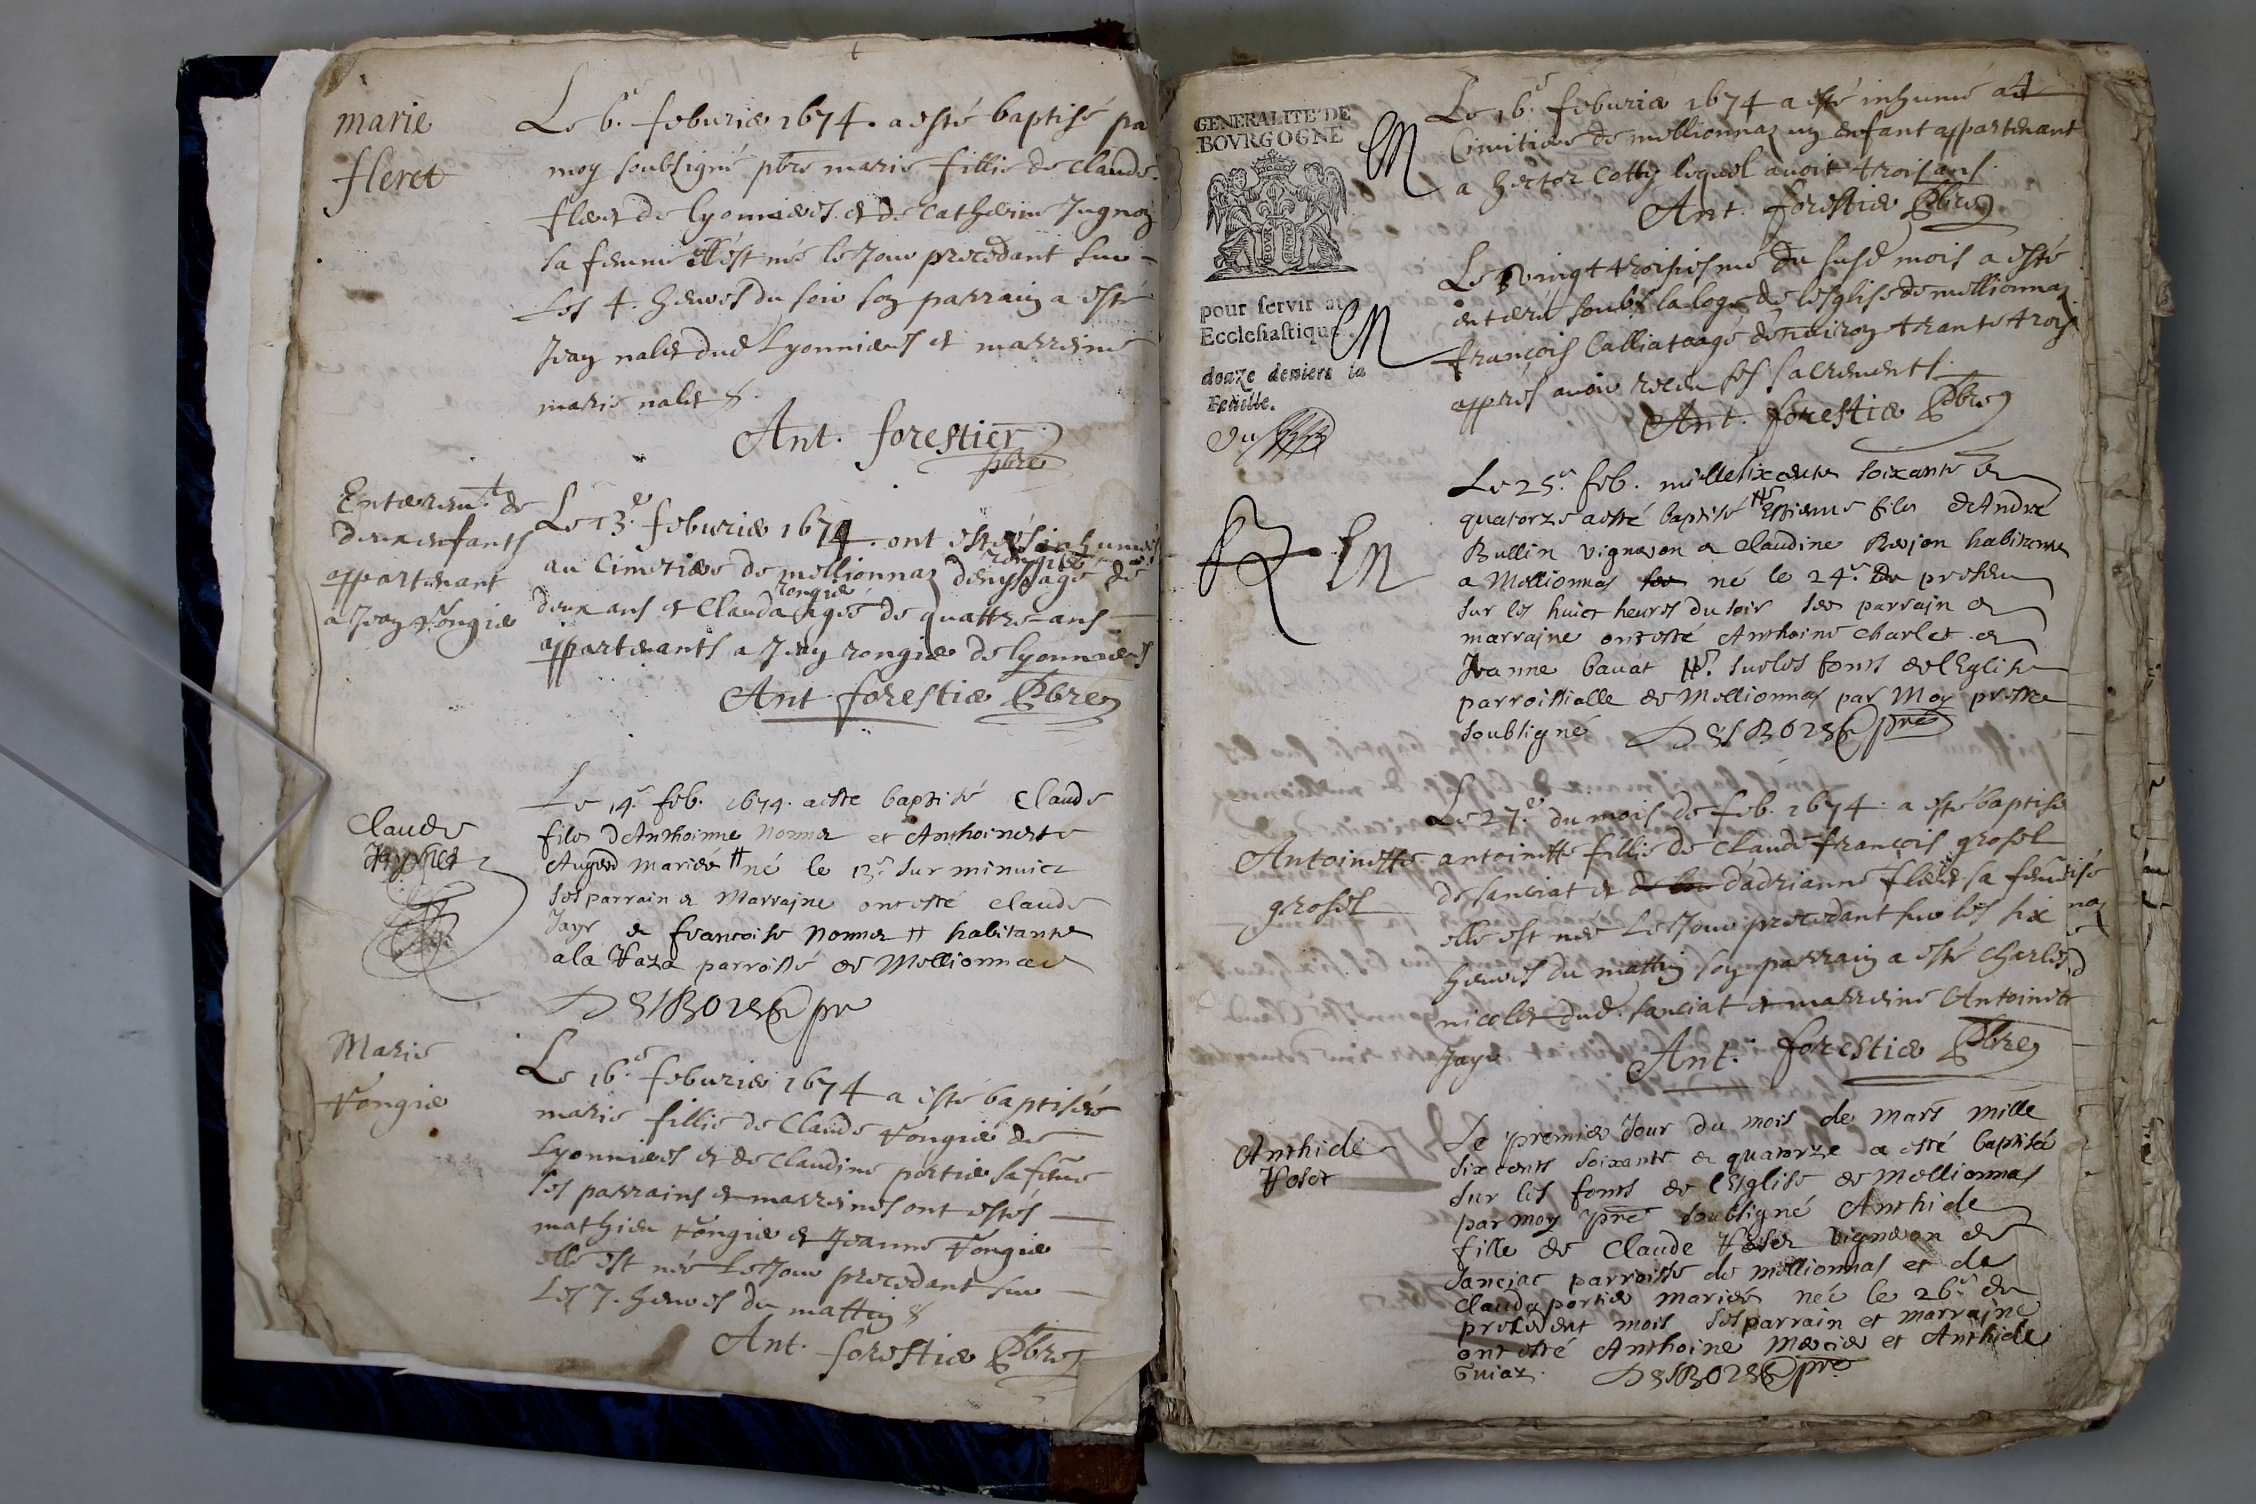 marie
fleret
Le 6.e feburier 1674. a esté baptisé pa
moy soubsigné pbre marie fillie de claude
fleret de lyonnieres et de catherine Jugnoz
sa femme est né le Jour precedant sur
les 4. heures du soir son parrain a esté
Jean nalet dud Lyonnieres et marreine
marie nalet
Ant. forestier
pbre
Enterremt de
deux enfants
appartenant
a Jean rongier
Le 13.e feburier 1674. ont estés inhumés
au Cimetiere de mellionnaz denys rongier agé de
deux ans et Clauda rongier agée de quattre ans
appartenants a Jean rongier de lyonnieres
Ant. forestier Pbre
Claude
Le 14.e feb. 1674. a esté baptisé Claude
filz d'Anthoinne nonner et Anthoinette
mariés né le 13.e sur minuict
ses parrain et Marrajne ont esté claude
Jayr et francoise nonner habitants
a la parroisse de Mellionnaz
DESBORDES pre
Marie
rongier
Le 16.e feburier 1674 a esté baptisée
marie fillie de Claude rongier de
Lyonnieres et de claudine portier sa feme
ses parrains et marreines ont estés
mathieu rongier et Jeanne rongier
elle est née le Jour precedant sur
les 7. heures du mattin
Ant. forestier Pbre
GENERALITE' DE
BOVRGOGNE
pour servir au
Ecclesiastique
douze deniers la
Feüille.
Le 16.e feburier 1674 a esté inhumé au
Cimitiere de mellionnaz un enfant appartenant
a hector Cottin lequel avoit trois ans.
Ant. forestier Pbre
Le vingt troisiesme du susd mois a esté
enterré soubs la loge de lesglise de mellionnaz
françois Calliat aagé denviron trante trois
appres avoir receu ses sacrements
Ant. forestier Pbre
Le 25.e feb. mille six cents soixante et
quatorze a esté baptisé Estienne filz d'André
Bullin vigneron et claudine Rojon habitants
a Mellionnas né le 24.e du present
sur les huict heures du soir ses parrain et
marrajne ont esté Anthoine charlet et
Jeanne bavat sur les fonts de l'Eglise
parroissialle de Mellionnas par Moy prestre
soubsigné DESBORDES pre
Antoinette
grosel
Le 27.e du mois de feb. 1674. a esté baptisé
antoinette fillie de claude françois grosel
de sanciat et d'adrianne fleret sa femme
elle est née le Jour precedant sur les six
heures du mattin son parrain a esté charles
nicolet dud. sanciat et marreine Antoinette
Jayr
Ant. forestier Pbre
Anthide
Le premier Jour du mois de mars mille
six cents soixante et quatorze a esté baptisée
sur les fonts de l'Eglise de Mellionnas
par moy pre soubsigné Anthide
fille de Claude vigneron de
sanciac parroisse de mellionnas et de
Clauda portier mariés née le 26.e du
precedent mois ses parrain et marrajne
ont esté Anthoine Mercier et Anthide
Guiaz. DESBORDES pre